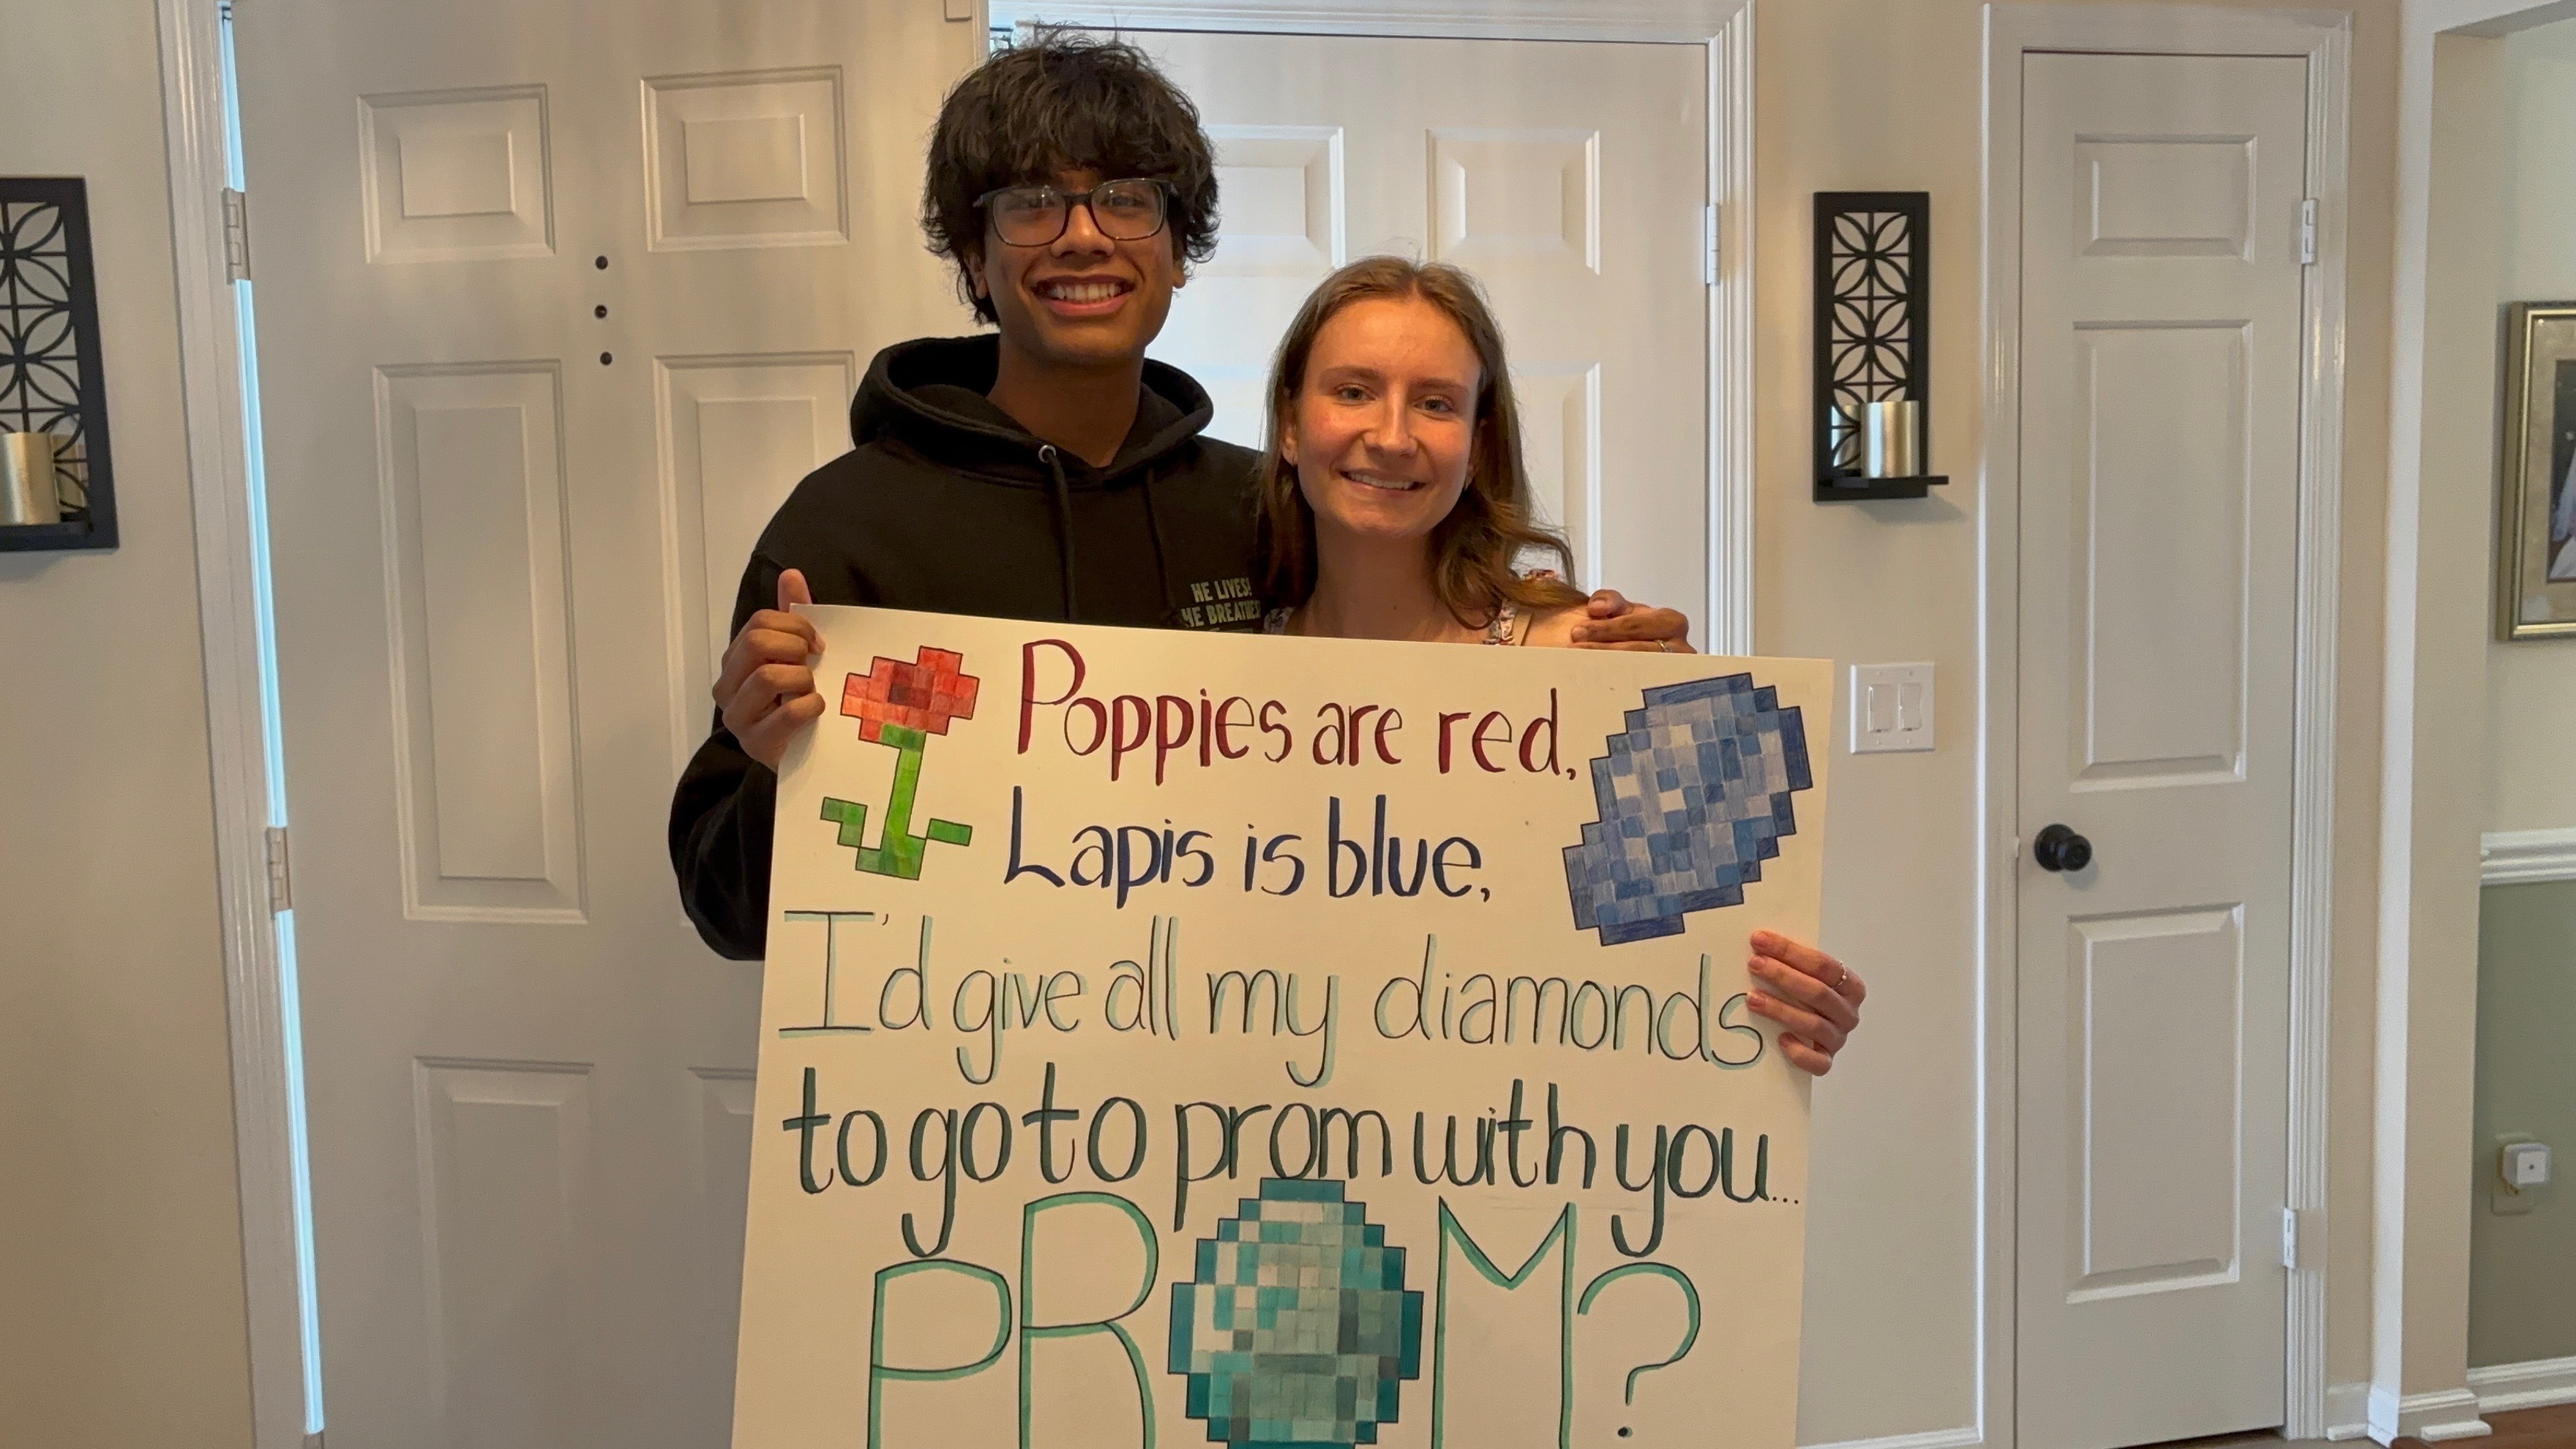 HE LIVES!
HE BREATHES!
Poppies are red,
Lapis is blue,
I'd give all my diamonds
to go to prom with you...
PROM?